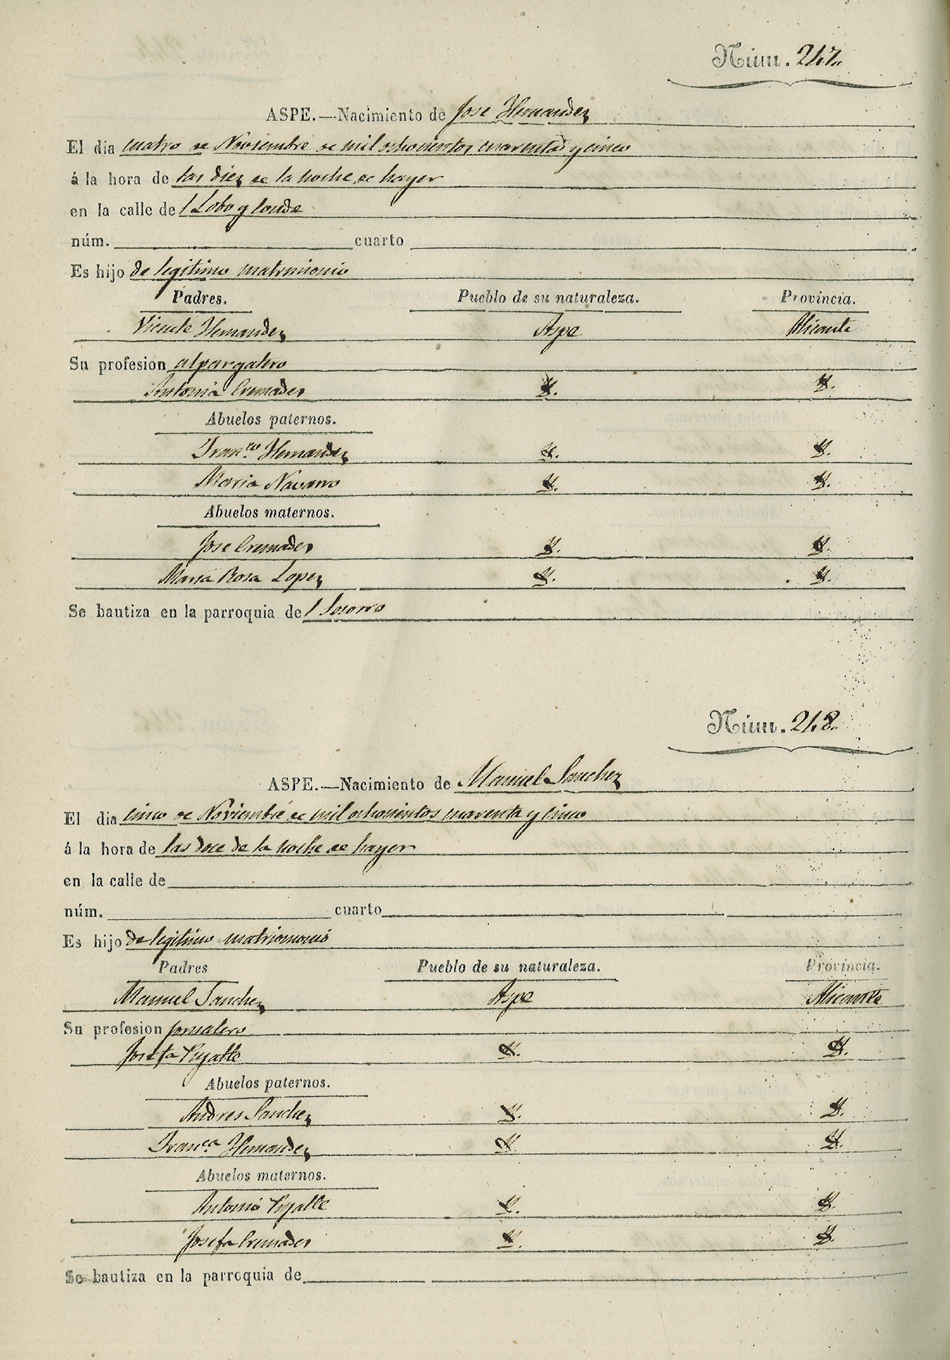 Núm. 247.
ASPE.—Nacimiento de Jose Hernandez
El dia cuatro de Noviembre de mil ochocientos cuarenta y cinco
á la hora de las diez de la noche de hayer
en la calle de
núm. cuarto
Es hijo de legitimo matrimonio
Padres. Pueblo de su naturaleza. Provincia.
Vicente Hernandez Aspe Alicante
Su profesion alpargatero
Antonia Cremades Y. Y.
Abuelos paternos.
Fran.co Hernandez Y. Y.
Maria Navarro Y. Y.
Abuelos maternos.
Jose Cremades Y. Y.
Maria Rosa Lopez Y. Y.
Se bautiza en la parroquia del Socorro
Núm. 248.
ASPE.—Nacimiento de Manuel Sanchez
El dia cinco de Noviembre de mil ochocientos cuarenta y cinco
á la hora de las doce de la noche de hayer
en la calle de
núm. cuarto
Es hijo de legitimo matrimonio
Padres Pueblo de su naturaleza. Provincia.
Manuel Sanchez Aspe Alicante
Su profesion jornalero
Josefa Y. Y.
Abuelos paternos.
Andres Sanchez Y. Y.
Fran.ca Hernandez Y. Y.
Abuelos maternos.
Antonio Y. Y.
Josefa Cremades Y. Y.
Se bautiza en la parroquia de